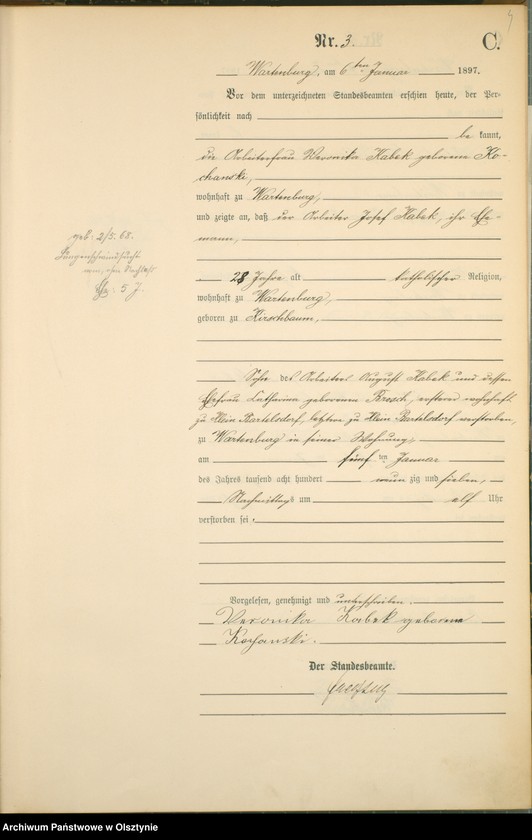 4
Nr. 3.
C.
Wartenburg, am 6ten Januar 1897.
Vor dem unterzeichneten Standesbeamten erschien heute, der Per-
sönlichkeit nach
be kannt,
die Arbeiterfrau Veronika Kabek geborene Ko-
chanski,
wohnhaft zu Wartenburg,
und zeigte an, daß der Arbeiter Josef Kabek, ihr Ehe-
mann,
28 Jahre alt katholischer Religion,
wohnhaft zu Wartenburg,
geboren zu Kirschbaum,
Sohn des Arbeiters August Kabek und dessen
Ehefrau Catharina geborenen Bresch, ersterer wohnhaft
zu Klein Bartelsdorf, letztere zu Klein Bartelsdorf verstorben,
zu Wartenburg in seiner Wohnung,
am fünf ten Januar
des Jahres tausend acht hundert neun zig und sieben,
Nachmittags um elf Uhr
verstorben sei.
geb. 2/5. 68.
Lungenschwindsucht
Ehe: 5 J.
Vorgelesen, genehmigt und unterschrieben.
Veronika Kabek geborene
Kochanski.
Der Standesbeamte.
Archiwum Państwowe w Olsztynie